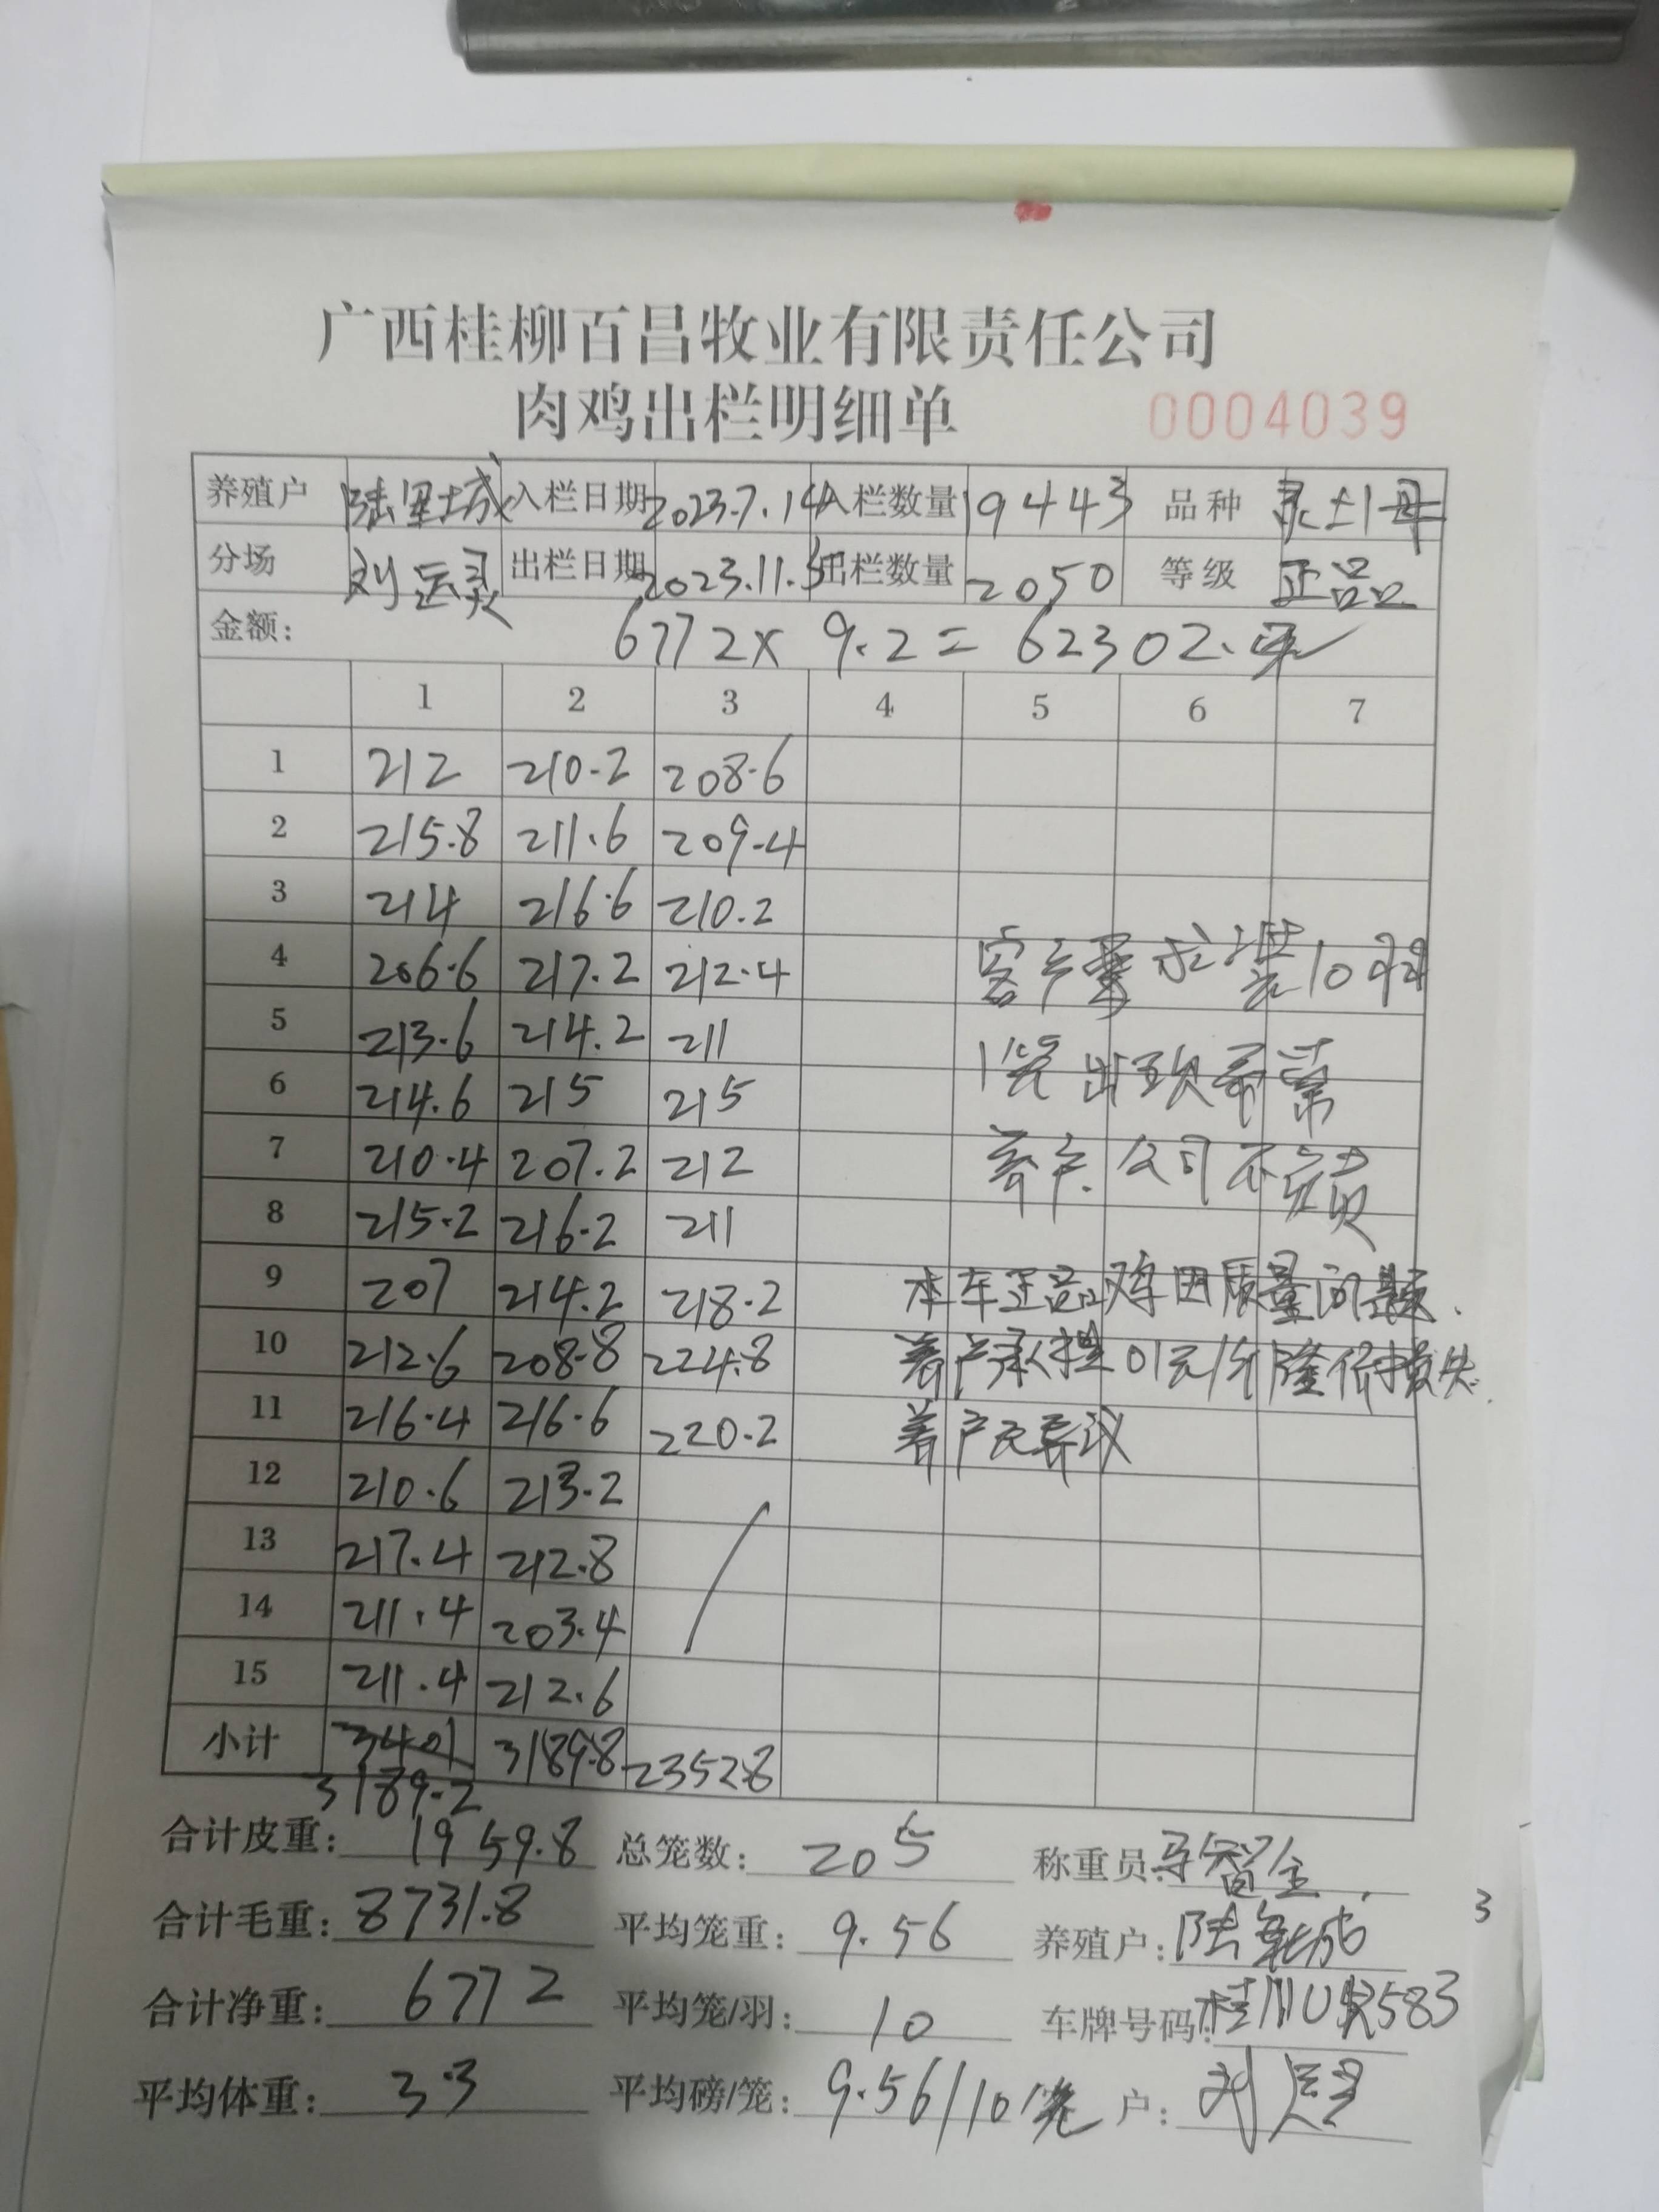 广西桂柳百昌牧业有限责任公司
肉鸡出栏明细单 0004039
养殖户 入栏日期 2023.7.14 入栏数量 19443 品种 灵土1母
分场 刘运灵 出栏日期 2023.11.5 出栏数量 2050 等级 正品
金额: 6772x 9.2= 62302.
1 2 3 4 5 6 7
1 212 210.2 208.6
2 215.8 211.6 209.4
3 214 216.6 210.2
4 206.6 217.2 212.4 客户要求装10羽
5 213.6 214.2 211
6 214.6 215 215 1笼出现
7 210.4 207.2 212 养户.公司不负责
8 215.2 216.2 211
9 207 214.2 218.2 本车正品鸡因质量问题.
10 212.6 208.8 224.8 养户承担01元/斤降价损失.
11 216.4 216.6 220.2 养户无异议
12 210.6 213.2
13 217.4 212.8
14 211.4 203.4
15 211.4 212.6
小计 3401 3189.8 2352.8
3189.2
合计皮重: 1959.8 总笼数: 205 称重员:
合计毛重: 8731.8 平均笼重: 9.56 养殖户: 3
合计净重: 6772 平均笼/羽: 10 车牌号码:
平均体重: 3.3 平均磅/笼: 9.56/10笼 户: